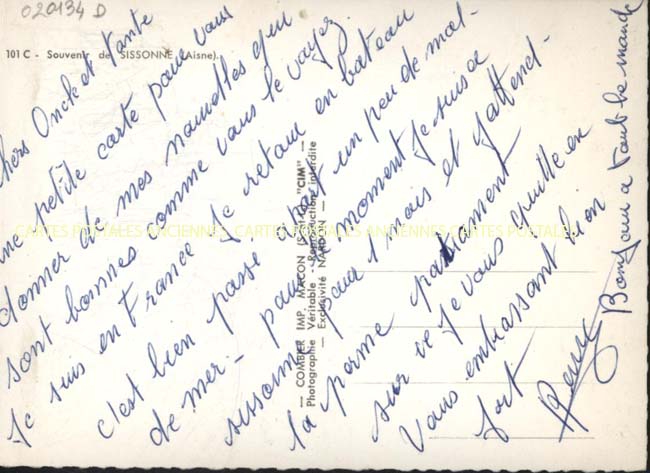 020134 D
101 C - Souvenir de SISSONNE (Aisne).
chers Oncle et tante
une petite carte pour vous
donner de mes nouvelles qui
sont bonnes comme vous le voyez
je suis en France le retour en bateau
c'est bien passe apart un peu de mal
de mer - pour le moment je suis a
sissonne pour 1 mois et j'attend
la perme patiament
sur ce je vous quitte en
vous embrassant bien
fort
Bonjour a tout le monde
— COMBIER IMP. MACON (S.-et-L.) "CIM" —
Photographie Véritable - Reproduction interdite
— Exclusivité NARDON —
CARTES POSTALES ANCIENNES CARTES POSTALES ANCIENNES CARTES POSTALES